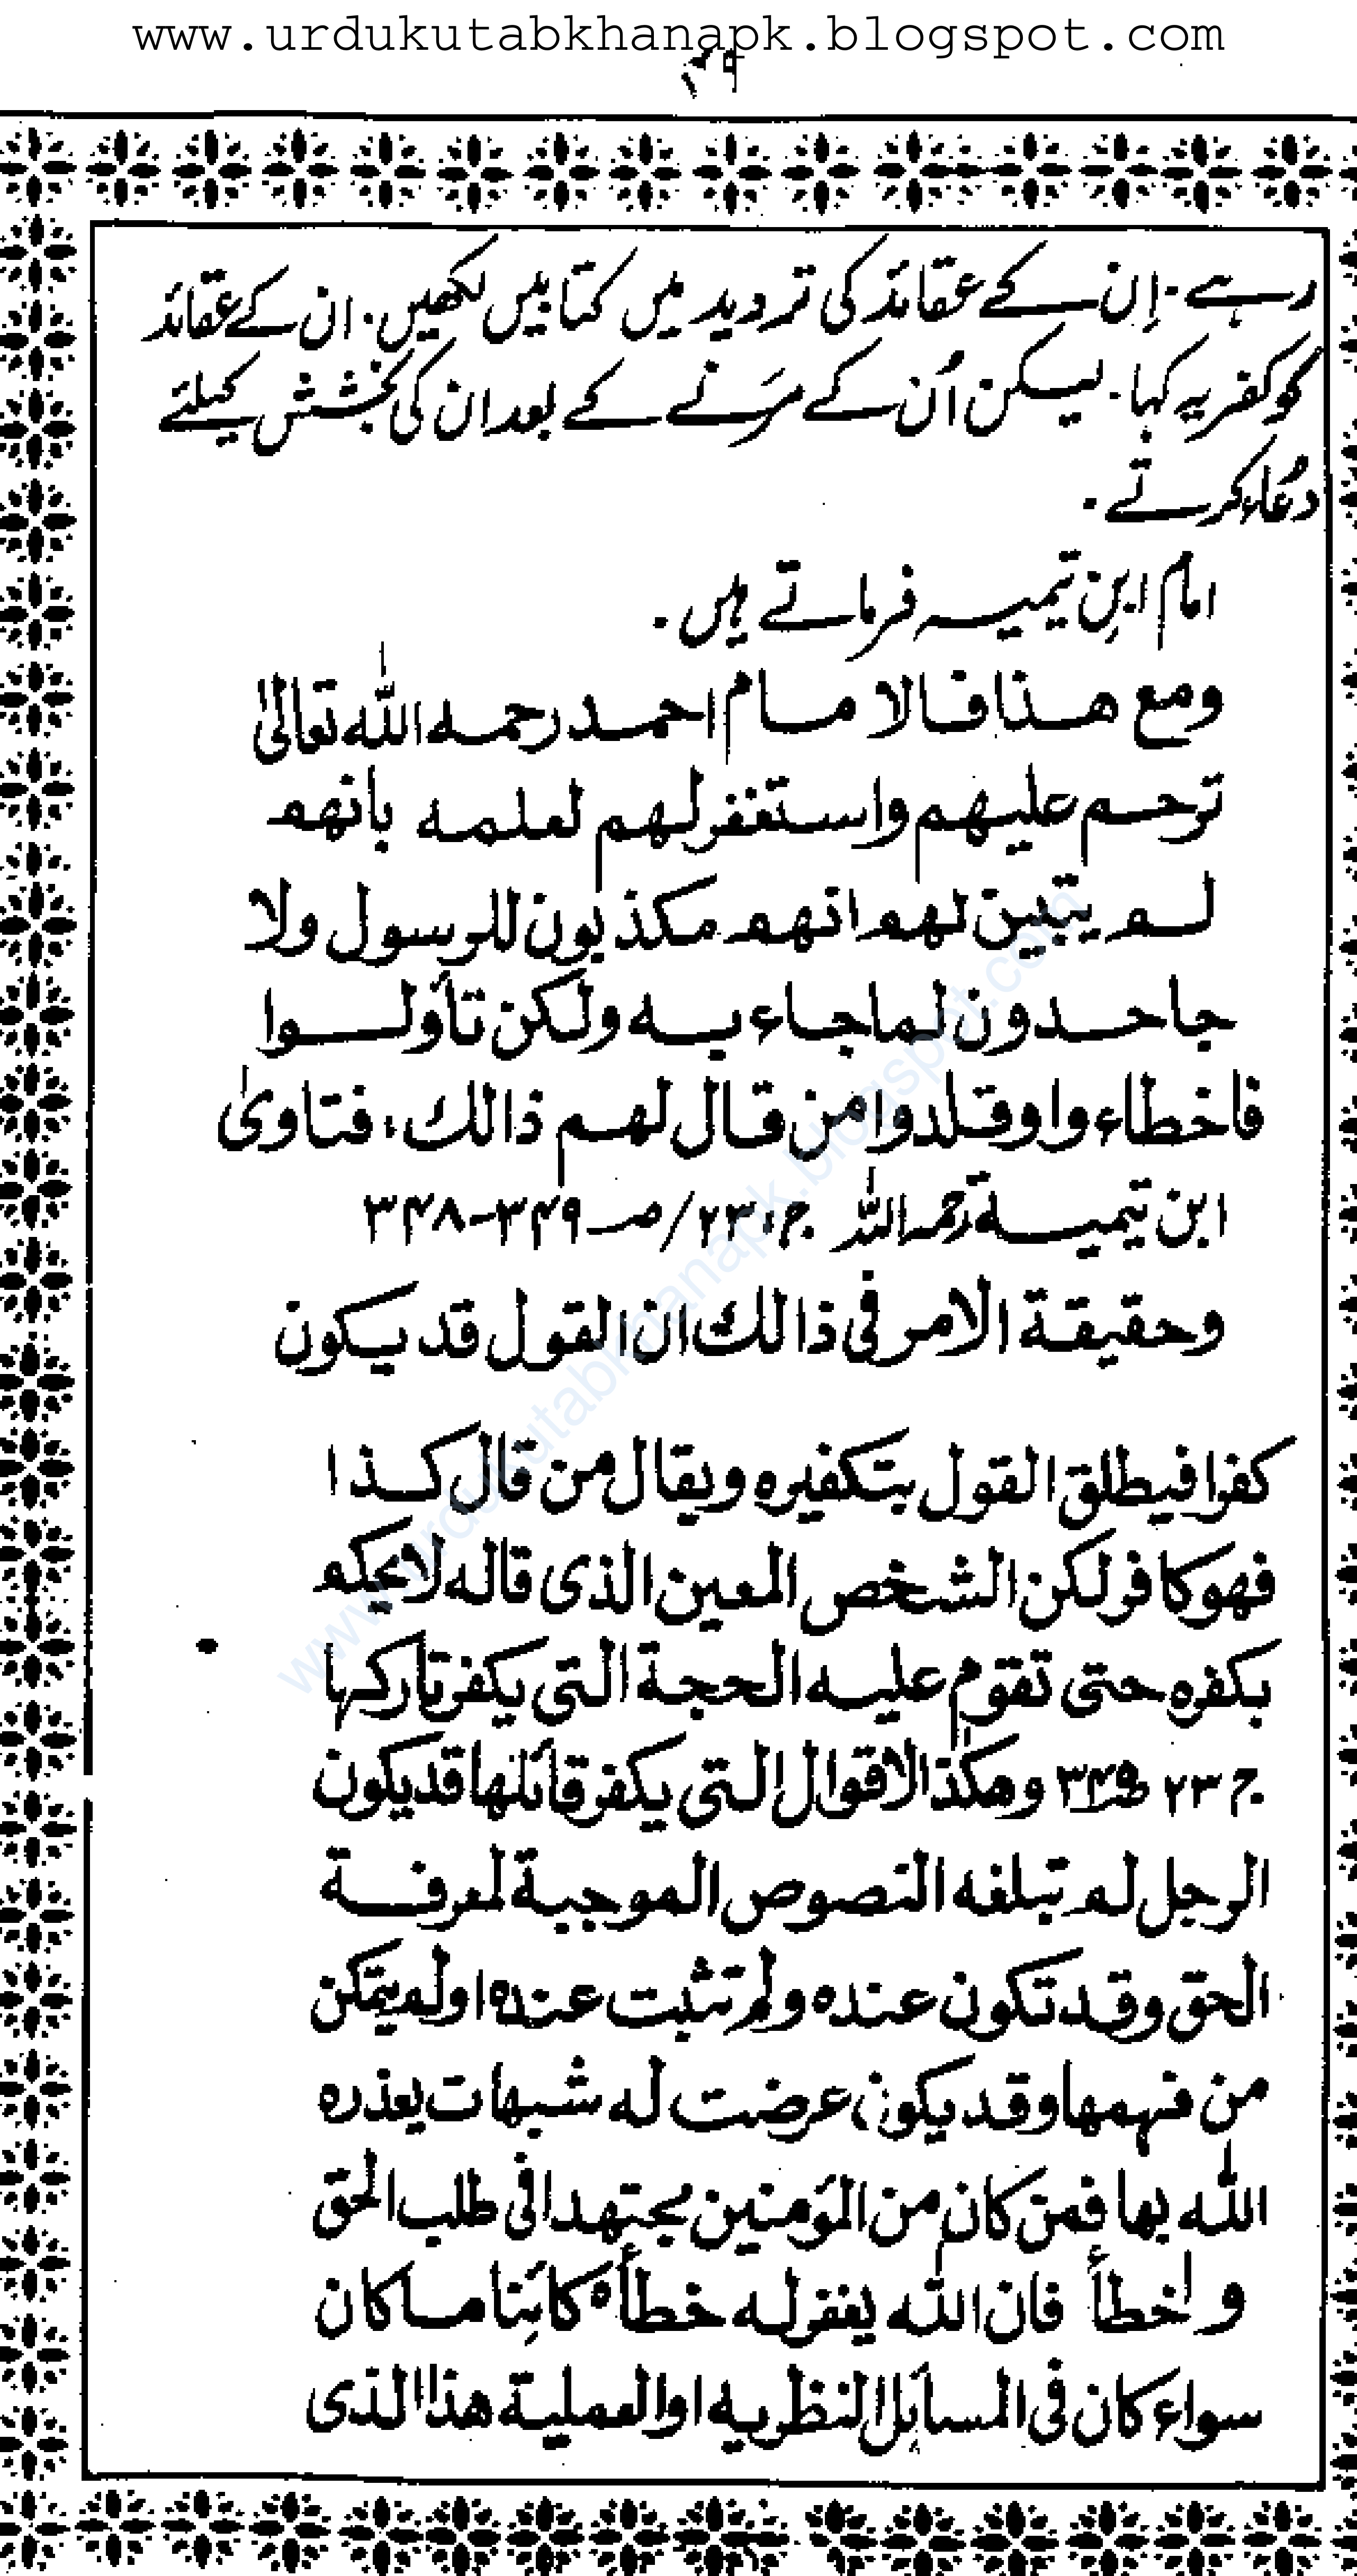 www.urdukutabkhanapk.blogspot.com
۲۹
رہے۔ اِن کے عقائد کی تردید میں کتابیں لکھیں۔ ان کے عقائد
کو کفریہ کہا۔ لیکن اُن کے مَرنے کے بعد ان کی بخشش کیلئے
دُعاء کرتے۔
امام ابنِ تیمیہ فرماتے ہیں۔
ومع هذا فالامام احمد رحمه الله تعالیٰ
ترحم عليهم واستغفر لهم لعلمه بانهم
لم يتبين لهم انهم مكذبون للرسول ولا
جاحدون لما جاء به ولكن تأولوا
فاخطاء وا وقلدوا من قال لهم ذالك، فتاویٰ
ابن تيمية رحمہ اللہ ج، ۲۳/صـ ۳۴۹-۳۴۸
وحقيقة الامر فى ذالك ان القول قد يكون
كفرا فيطلق القول بتكفيره ويقال من قال كذا
فهو كافر لكن الشخص المعين الذى قاله لا يحكم
بكفره حتى تقوم عليه الحجة التى يكفر تاركها
ج ۲۳ صـ ۳۴۵ وهكذا الاقوال التى يكفر قائلها قد يكون
الرجل لم تبلغه النصوص الموجبة لمعرفة
الحق وقد تكون عنده ولم تثبت عنده او لم يتمكن
من فهمها وقد يكون عرضت له شبهات يعذره
الله بها فمن كان من المؤمنين مجتهدا فى طلب الحق
و اخطأ فان الله يغفر له خطأه كائنا ما كان
سواء كان فى المسائل النظريه او العملية هذا الذى
www.urdukutabkhanapk.blogspot.com